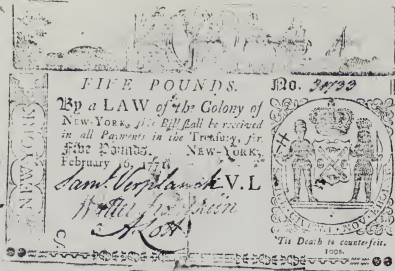 FIVE POUNDS.
No. 30733
By a LAW of the Colony of
NEW-YORK, this Bill shall be received
in all Payments in the Treasury, for
Five Pounds. NEW-YORK,
February 16, 1771.
NEWYORK
Saml. Verplanck V. L
A Lott
'Tis Death to counterfeit.